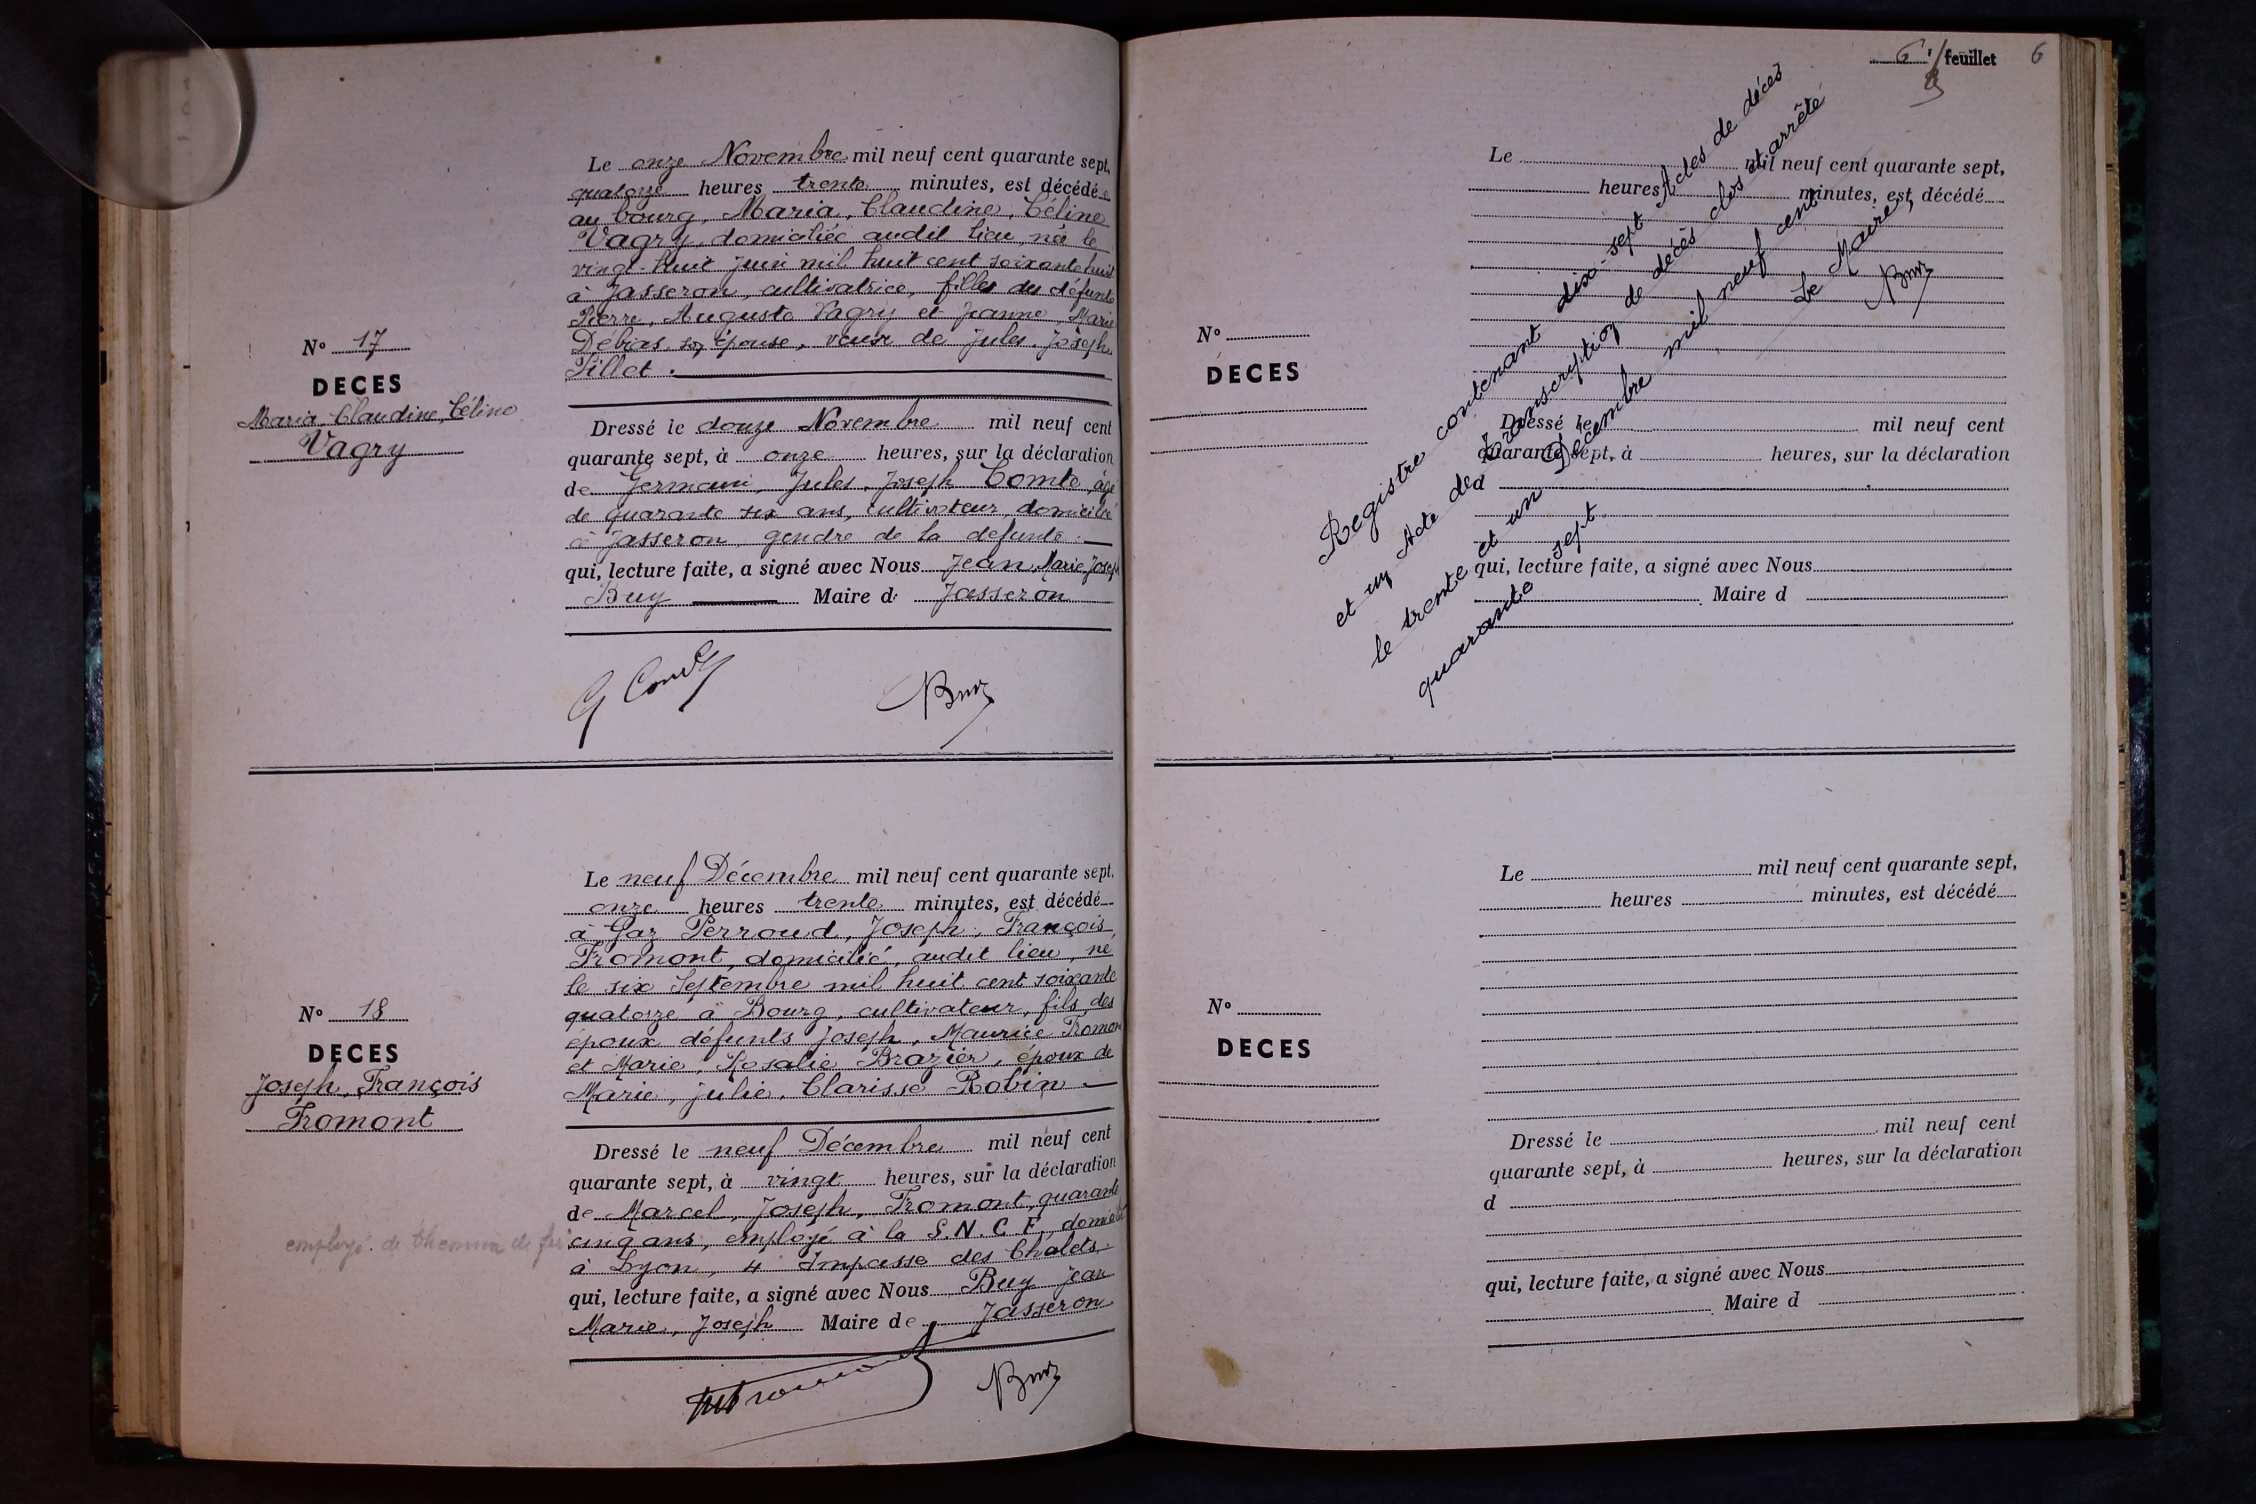 Le onze Novembre mil neuf cent quarante sept,
quatorze heures trente minutes, est décédée
au bourg, Maria, Claudine, Céline
Vagry, domiciliée audit lieu, née le
vingt-huit juin mil huit cent soixante huit
à Jasseron, cultivatrice, fille du défunts
Pierre, Auguste Vagry et Jeanne, Marie
Debias son épouse, veuve de Jules, Joseph
Pillet.
N° 17
DECES
Maria, Claudine, Céline
Vagry
Dressé le douze Novembre mil neuf cent
quarante sept, à onze heures, sur la déclaration
de Germain, Jules, Joseph Comte, âgé
de quarante six ans, cultivateur, domicilié
à Jasseron, gendre de la defunte.
qui, lecture faite, a signé avec Nous Jean, Marie, Joseph
Buy Maire de Jasseron
G Comte
Buy
Le neuf Décembre mil neuf cent quarante sept,
onze heures trente minutes, est décédé
à Gaz Perroud, Joseph, François,
Fromont, domicilié, audit lieu, né
le six Septembre mil huit cent soixante
quatorze à Bourg, cultivateur, fils des
époux défunts Joseph, Maurice Fromont
et Marie, Rosalie Brazier, époux de
Marie, Julie, Clarisse Robin
N° 18
DECES
Joseph, François
Fromont
Dressé le neuf Décembre mil neuf cent
quarante sept, à vingt heures, sur la déclaration
de Marcel, Joseph, Fromont, quarante
cinq ans, employé à la S.N.C.F, domicilié
à Lyon, 4 Impasse des Chalets,
employé de Chemin de fer
qui, lecture faite, a signé avec Nous Buy Jean
Marie, Joseph Maire de Jasseron
Buy
6 feuillet 6
Le mil neuf cent quarante sept,
heures minutes, est décédé
N°
DECES
Dressé le mil neuf cent
quarante sept, à heures, sur la déclaration
d
qui, lecture faite, a signé avec Nous
Maire d
Registre contenant dix-sept Actes de décès
et un Acte de transcription de décès clos et arrêté
le trente et un Décembre mil neuf cent
quarante sept.
Le Maire,
Buy
Le mil neuf cent quarante sept,
heures minutes, est décédé
N°
DECES
Dressé le mil neuf cent
quarante sept, à heures, sur la déclaration
d
qui, lecture faite, a signé avec Nous
Maire d